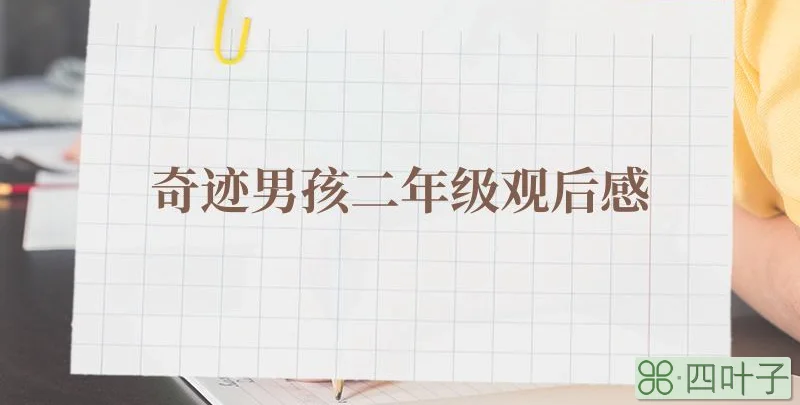 奇迹男孩二年级观后感
四叶子